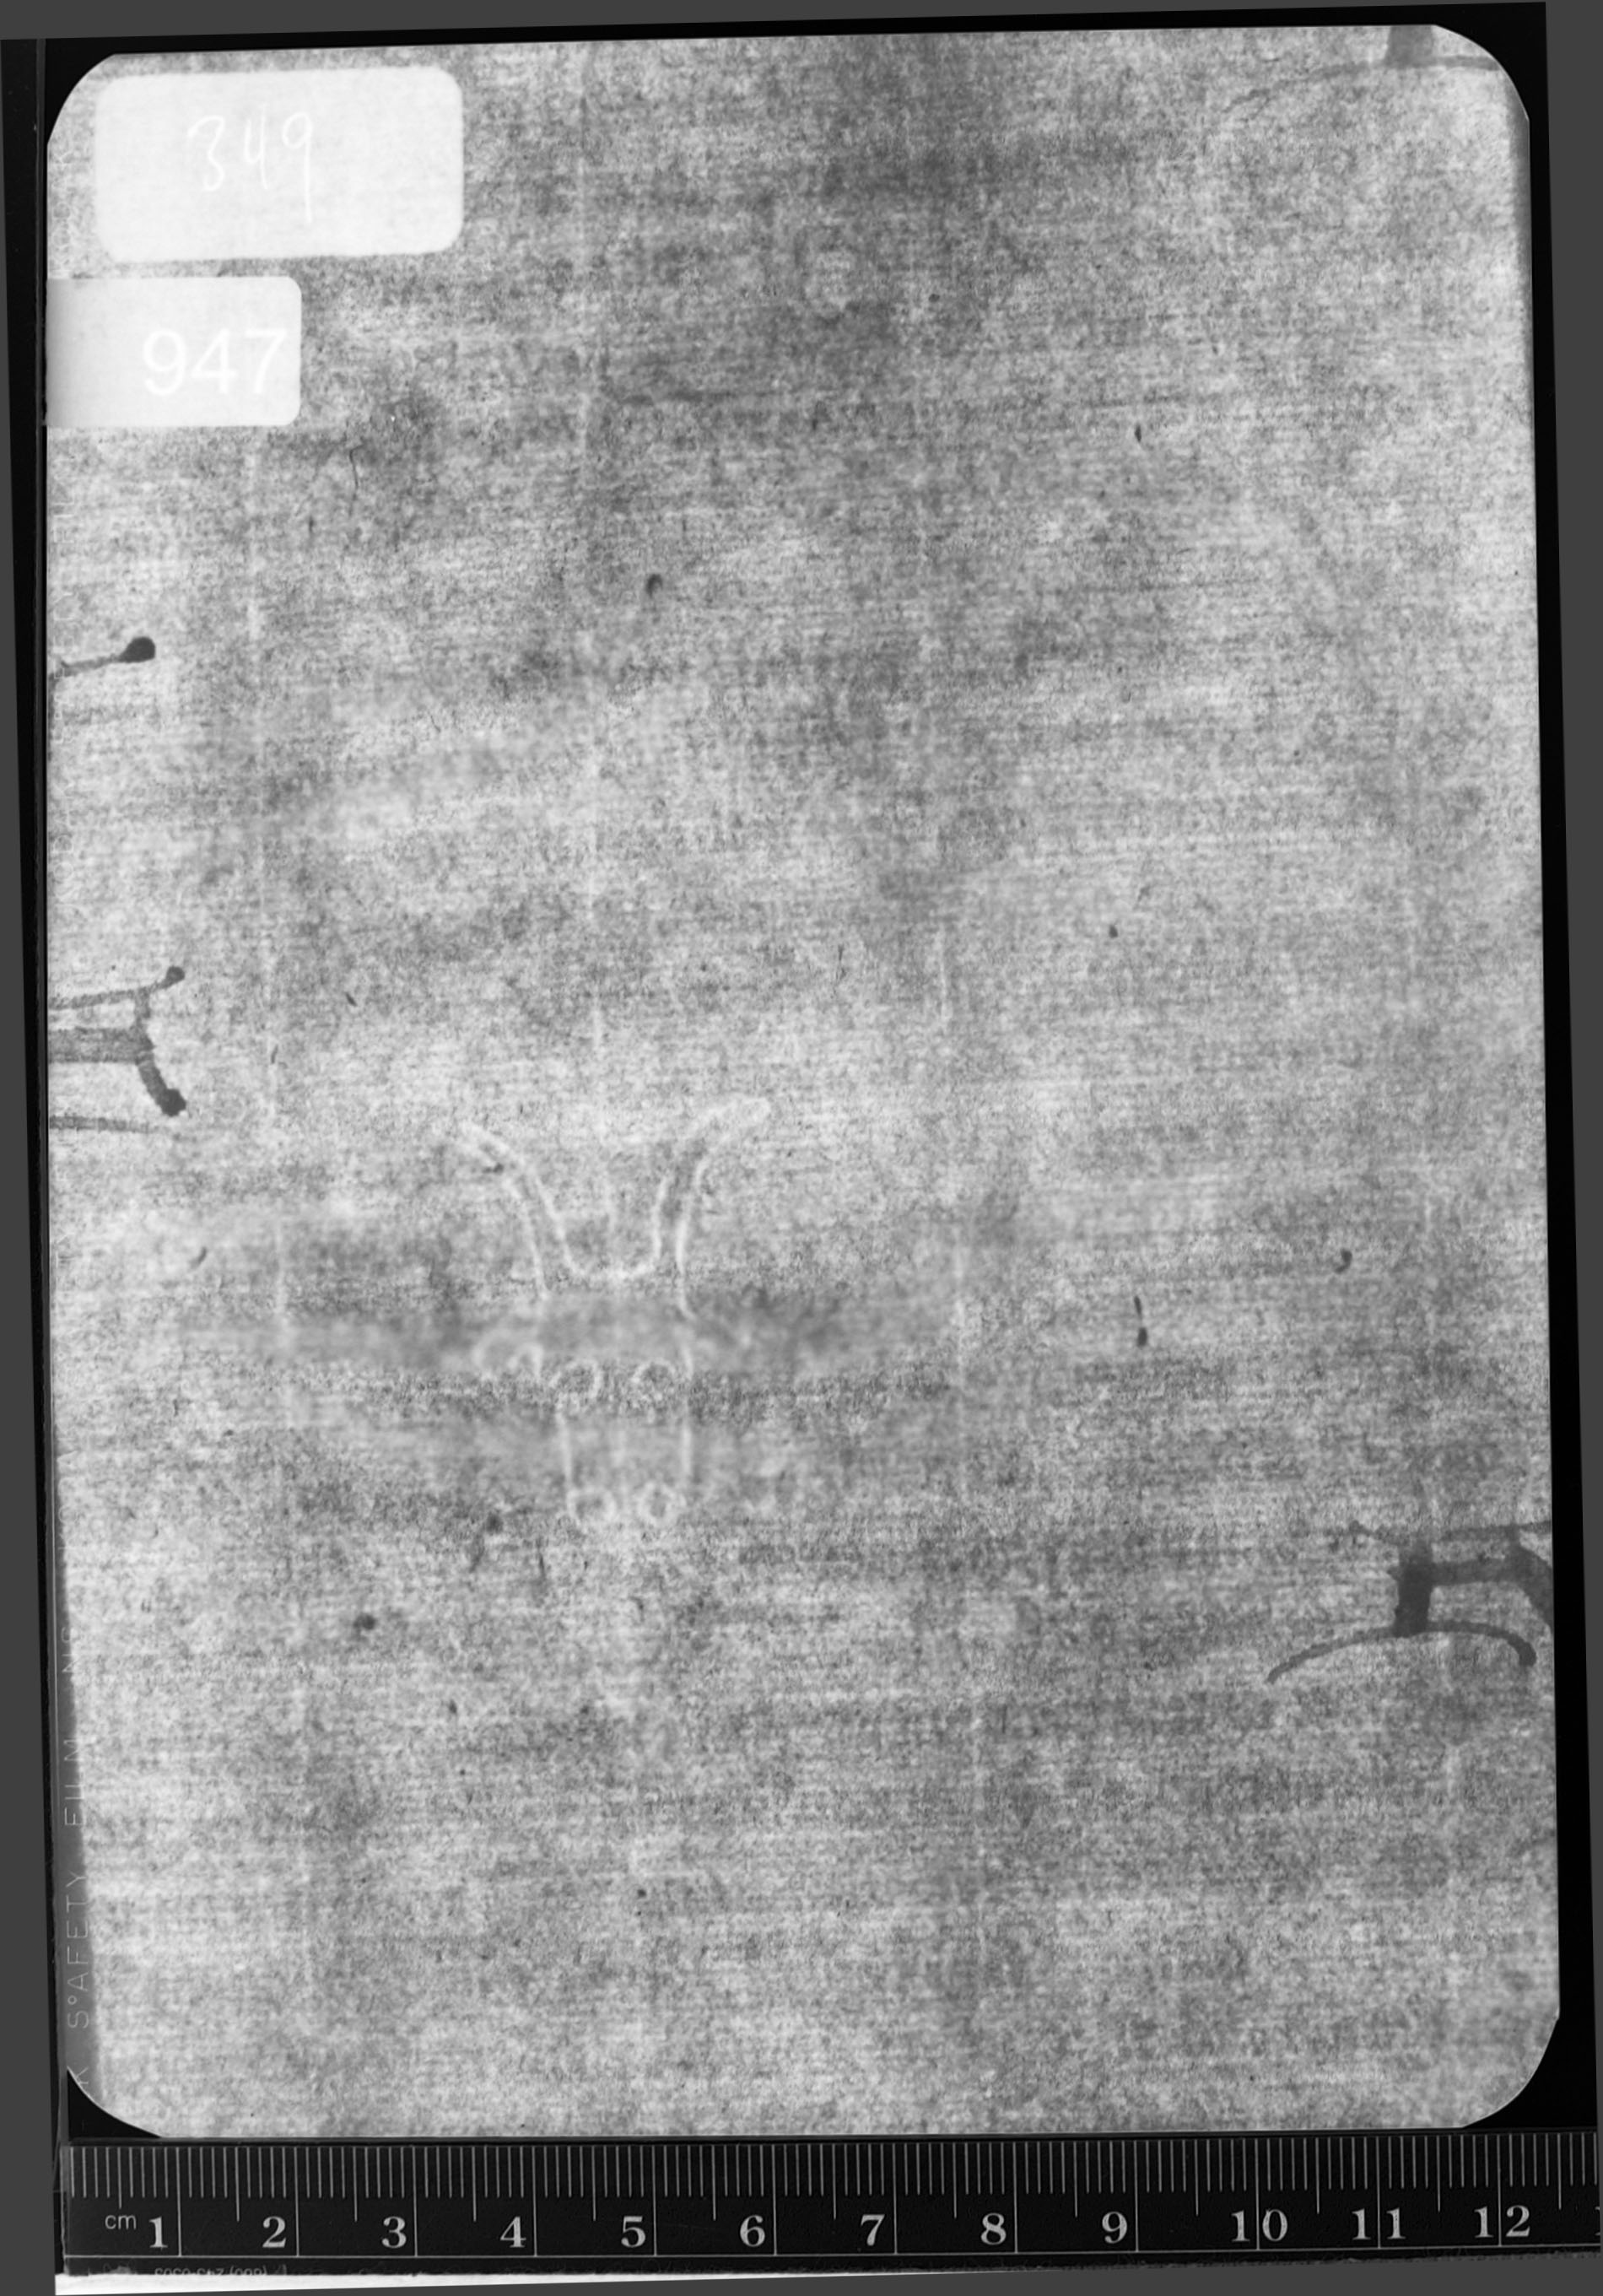 349
947
S°AFETY FILM
cm 1 2 3 4 5 6 7 8 9 10 11 12